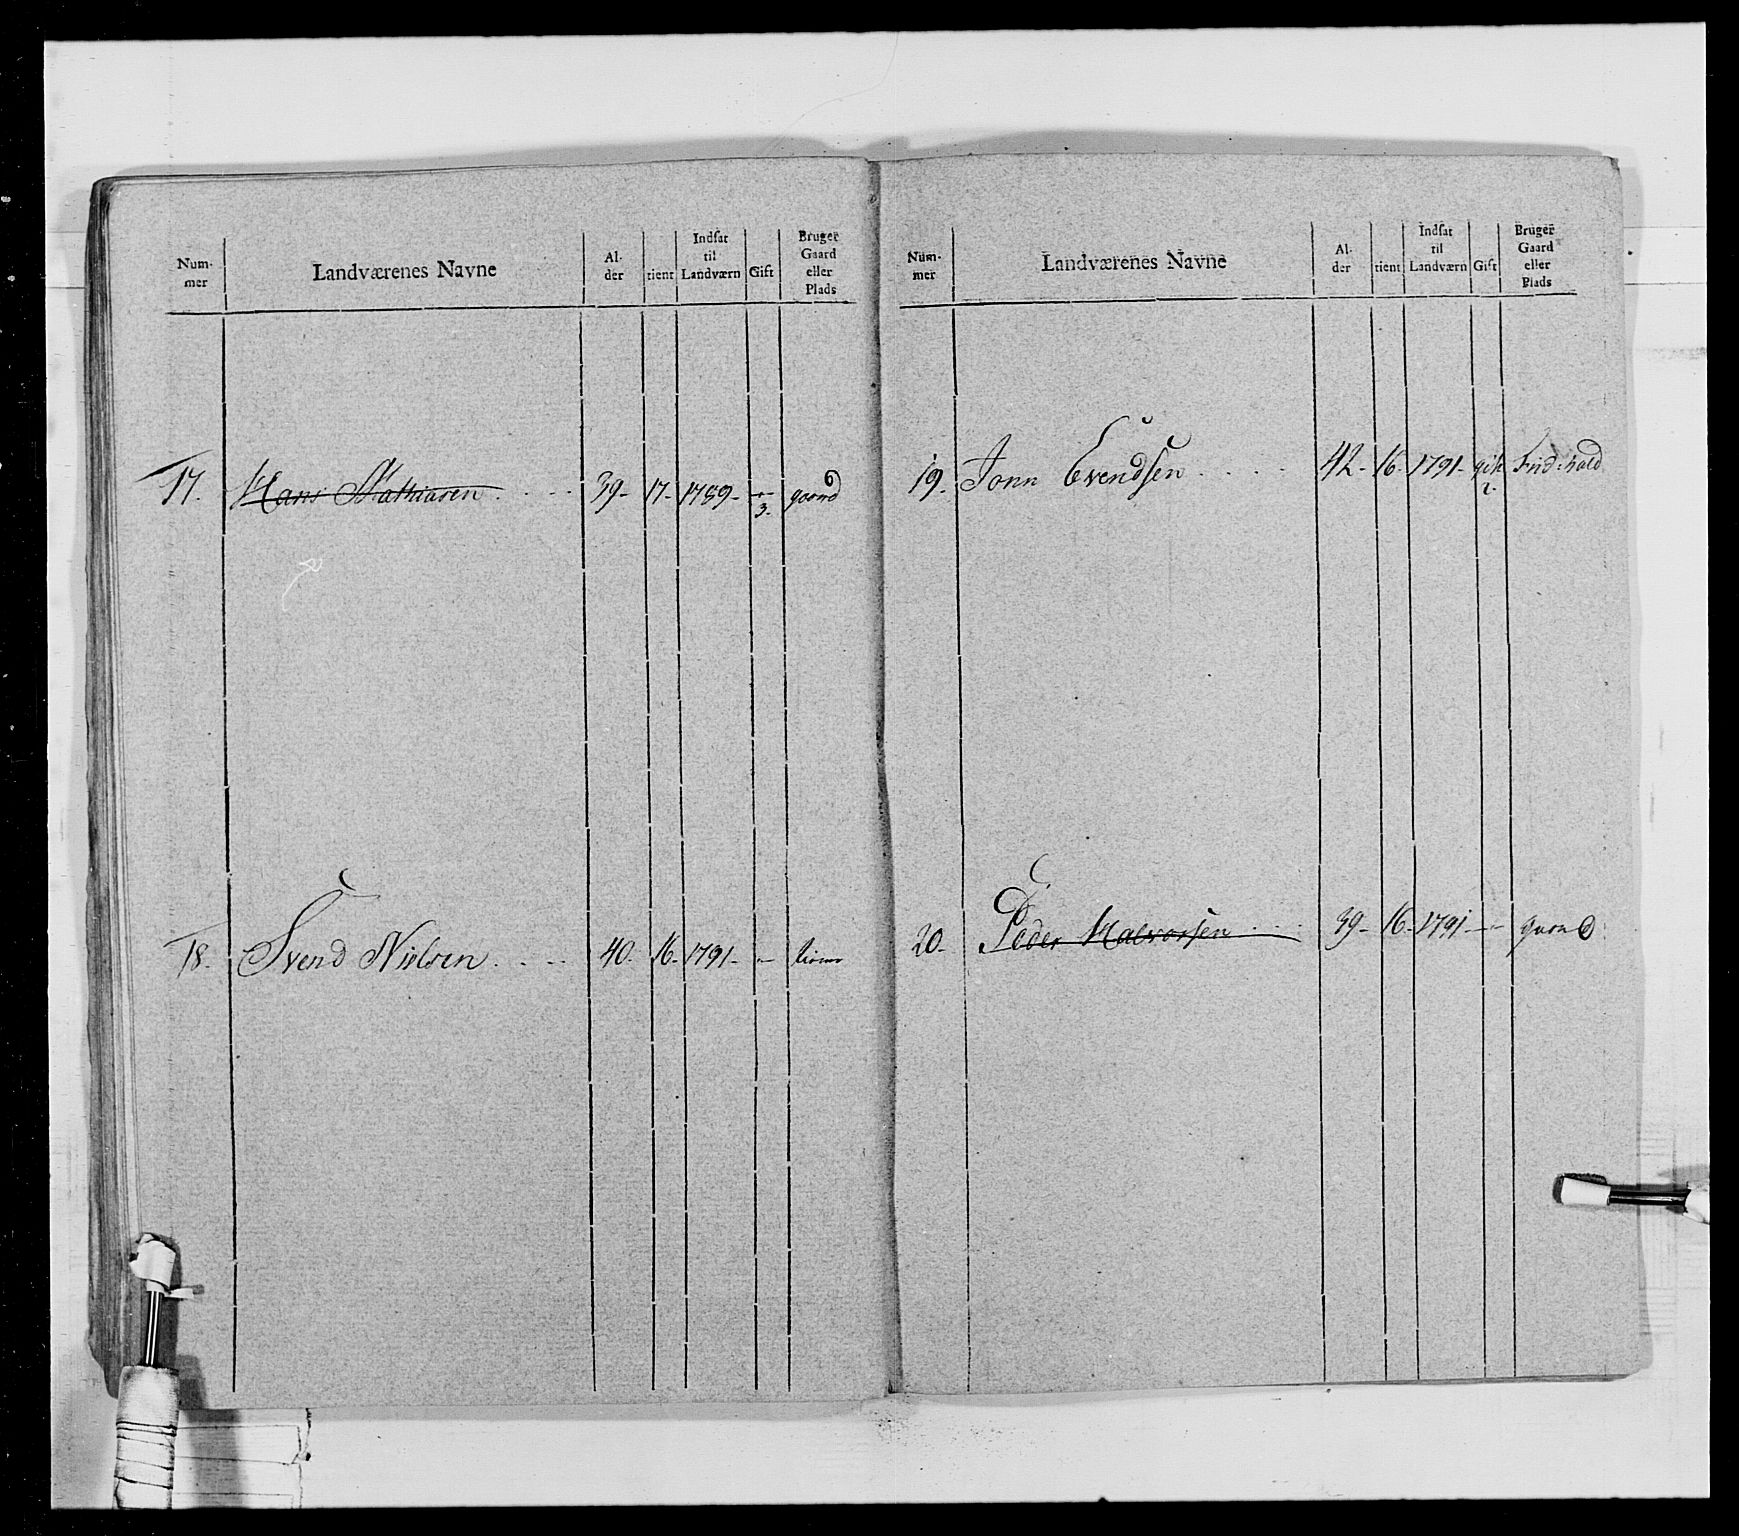 Num-
mer
Landværenes Navne
Al-
der
tient
Indsat
til
Landværn
Gift
Bruger
Gaard
eller
Plads
17. Hans Mathiasen 39- 17- 1789- 3- gaard
18. Svend Nielsen 40- 16- 1791-
Num-
mer
Landværenes Navne
Al-
der
tient
Indsat
til
Landværn
Gift
Bruger
Gaard
eller
Plads
19. Jonn Evendsen 42- 16- 1791- gift 2.
20. Peder Halvorsen 39- 16- 1791- gaard